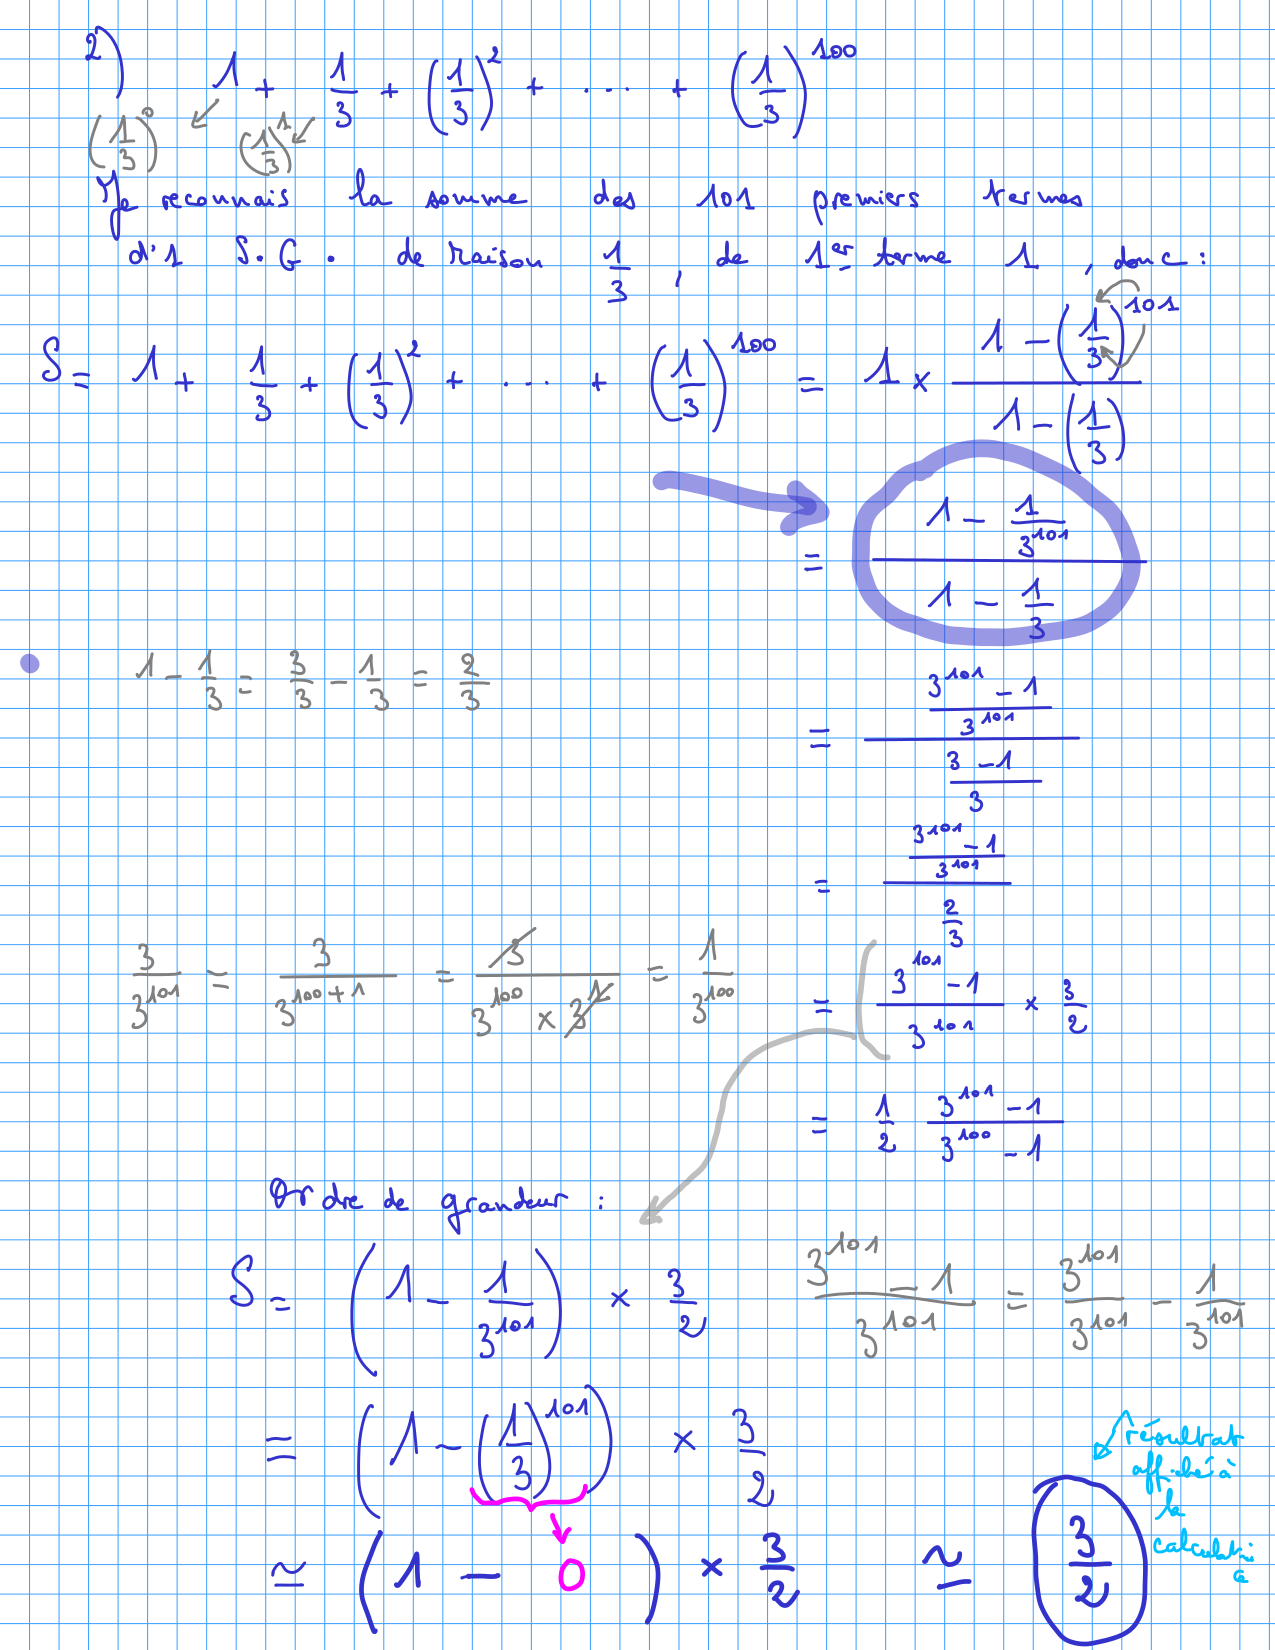 2) 1 + 1/3 + (1/3)^2 + ... + (1/3)^100
(1/3)^0 (1/3)^1
Je reconnais la somme des 101 premiers termes
d'1 S.G. de raison 1/3, de 1er terme 1, donc :
S = 1 + 1/3 + (1/3)^2 + ... + (1/3)^100 = 1 × (1 - (1/3)^101) / (1 - (1/3))
= (1 - 1/3^101) / (1 - 1/3)
1 - 1/3 = 3/3 - 1/3 = 2/3
= ((3^101 - 1)/3^101) / ((3 - 1)/3)
= ((3^101 - 1)/3^101) / (2/3)
3/3^101 = 3/3^(100+1) = 3/(3^100 × 3^1) = 1/3^100
= (3^101 - 1)/3^101 × 3/2
= 1/2 (3^101 - 1)/(3^100 - 1)
Ordre de grandeur :
S = (1 - 1/3^101) × 3/2
(3^101 - 1)/3^101 = 3^101/3^101 - 1/3^101
= (1 - (1/3)^101) × 3/2
résultat
affiché à
la
calculatri
c
≃ (1 - 0) × 3/2 ≃ 3/2